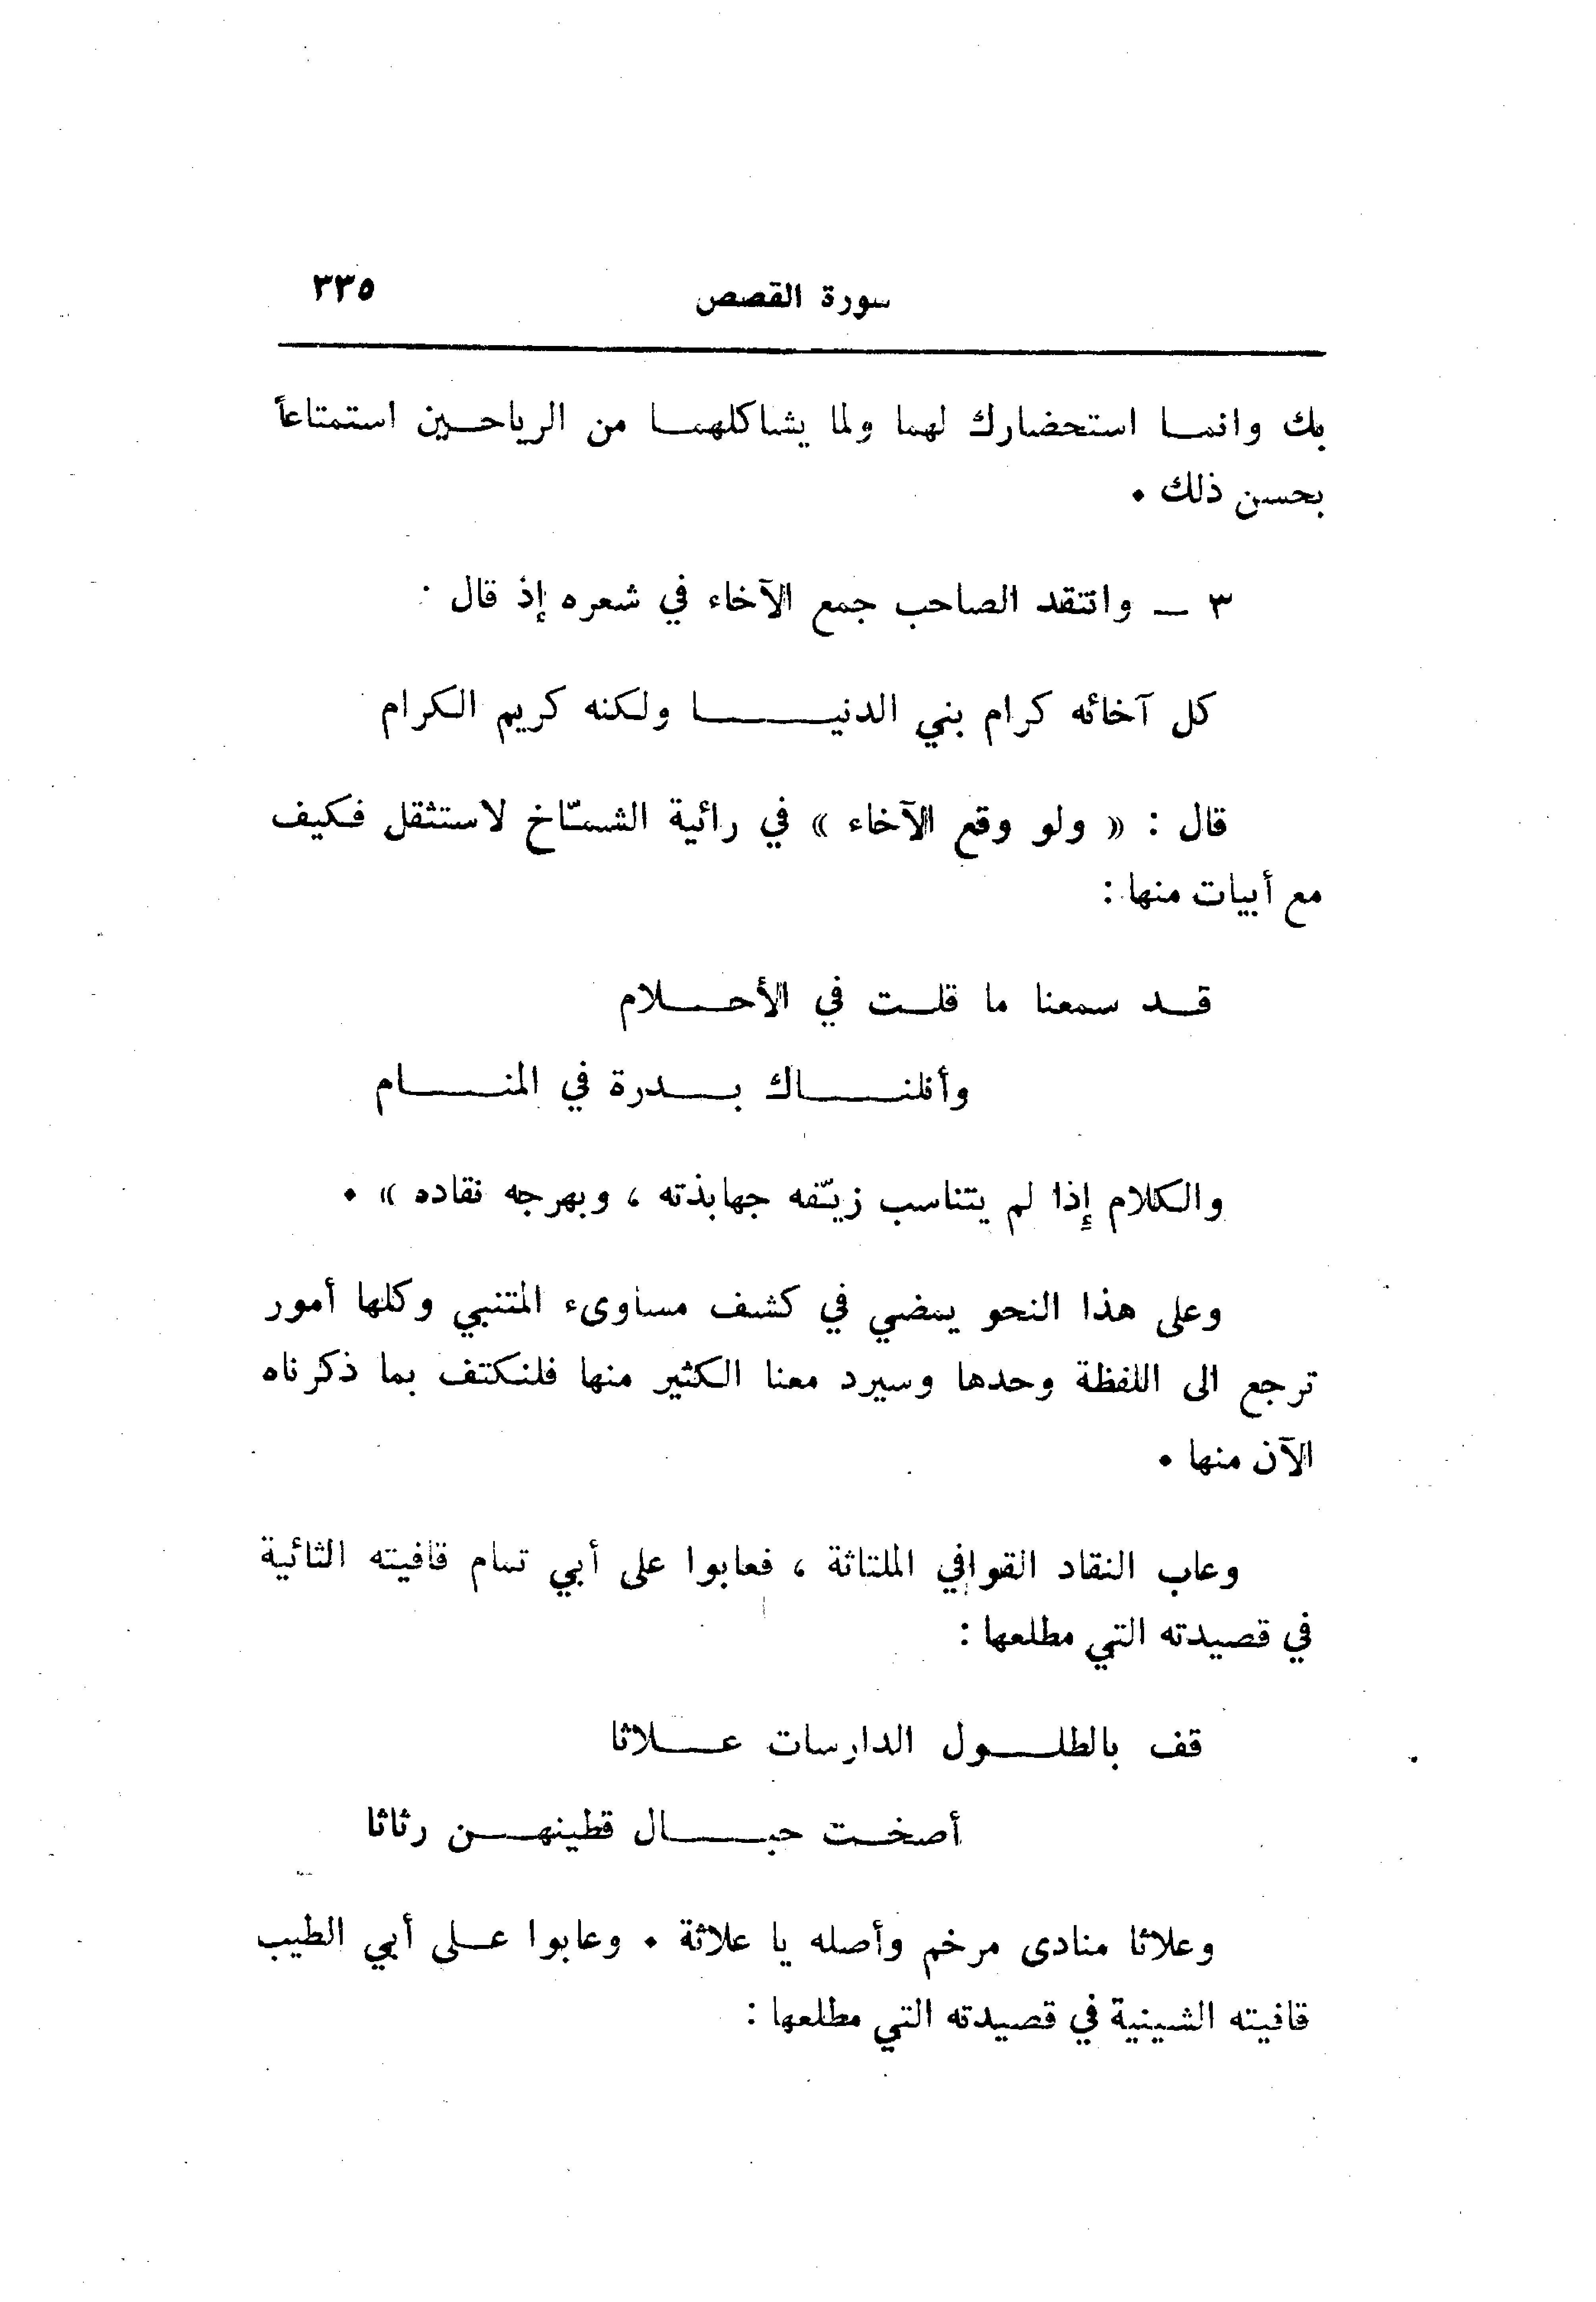 سورة القصص ٣٣٥
بك وانما استحضارك لهما ولما يشاكلهما من الرياحين استمتاعاً
بحسن ذلك •
٣ ــ وانتقد الصاحب جمع الآخاء في شعره إذ قال :
كل آخائه كرام بني الدنيا ولكنه كريم الكرام
قال : « ولو وقع الآخاء » في رائية الشمّاخ لاستثقل فكيف
مع أبيات منها :
قد سمعنا ما قلت في الأحلام
وأنلناك بدرة في المنام
والكلام إذا لم يتناسب زيّفه جهابذته ، وبهرجه نقاده » •
وعلى هذا النحو يمضي في كشف مساوىء المتنبي وكلها أمور
ترجع الى اللفظة وحدها وسيرد معنا الكثير منها فلنكتف بما ذكرناه
الآن منها •
وعاب النقاد القوافي الملتاثة ، فعابوا على أبي تمام قافيته الثائية
في قصيدته التي مطلعها :
قف بالطلول الدارسات علاثا
أضخت حبال قطينهن رثاثا
وعلاثا منادى مرخم وأصله يا علاثة • وعابوا على أبي الطيب
قافيته الشينية في قصيدته التي مطلعها :